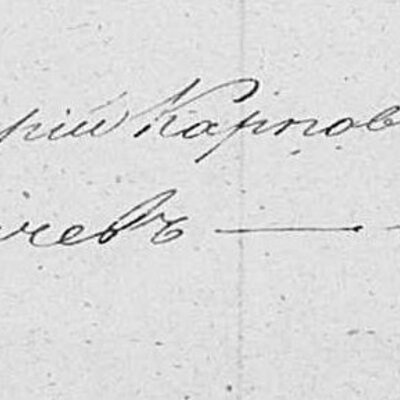 рій Карпов
чевъ —